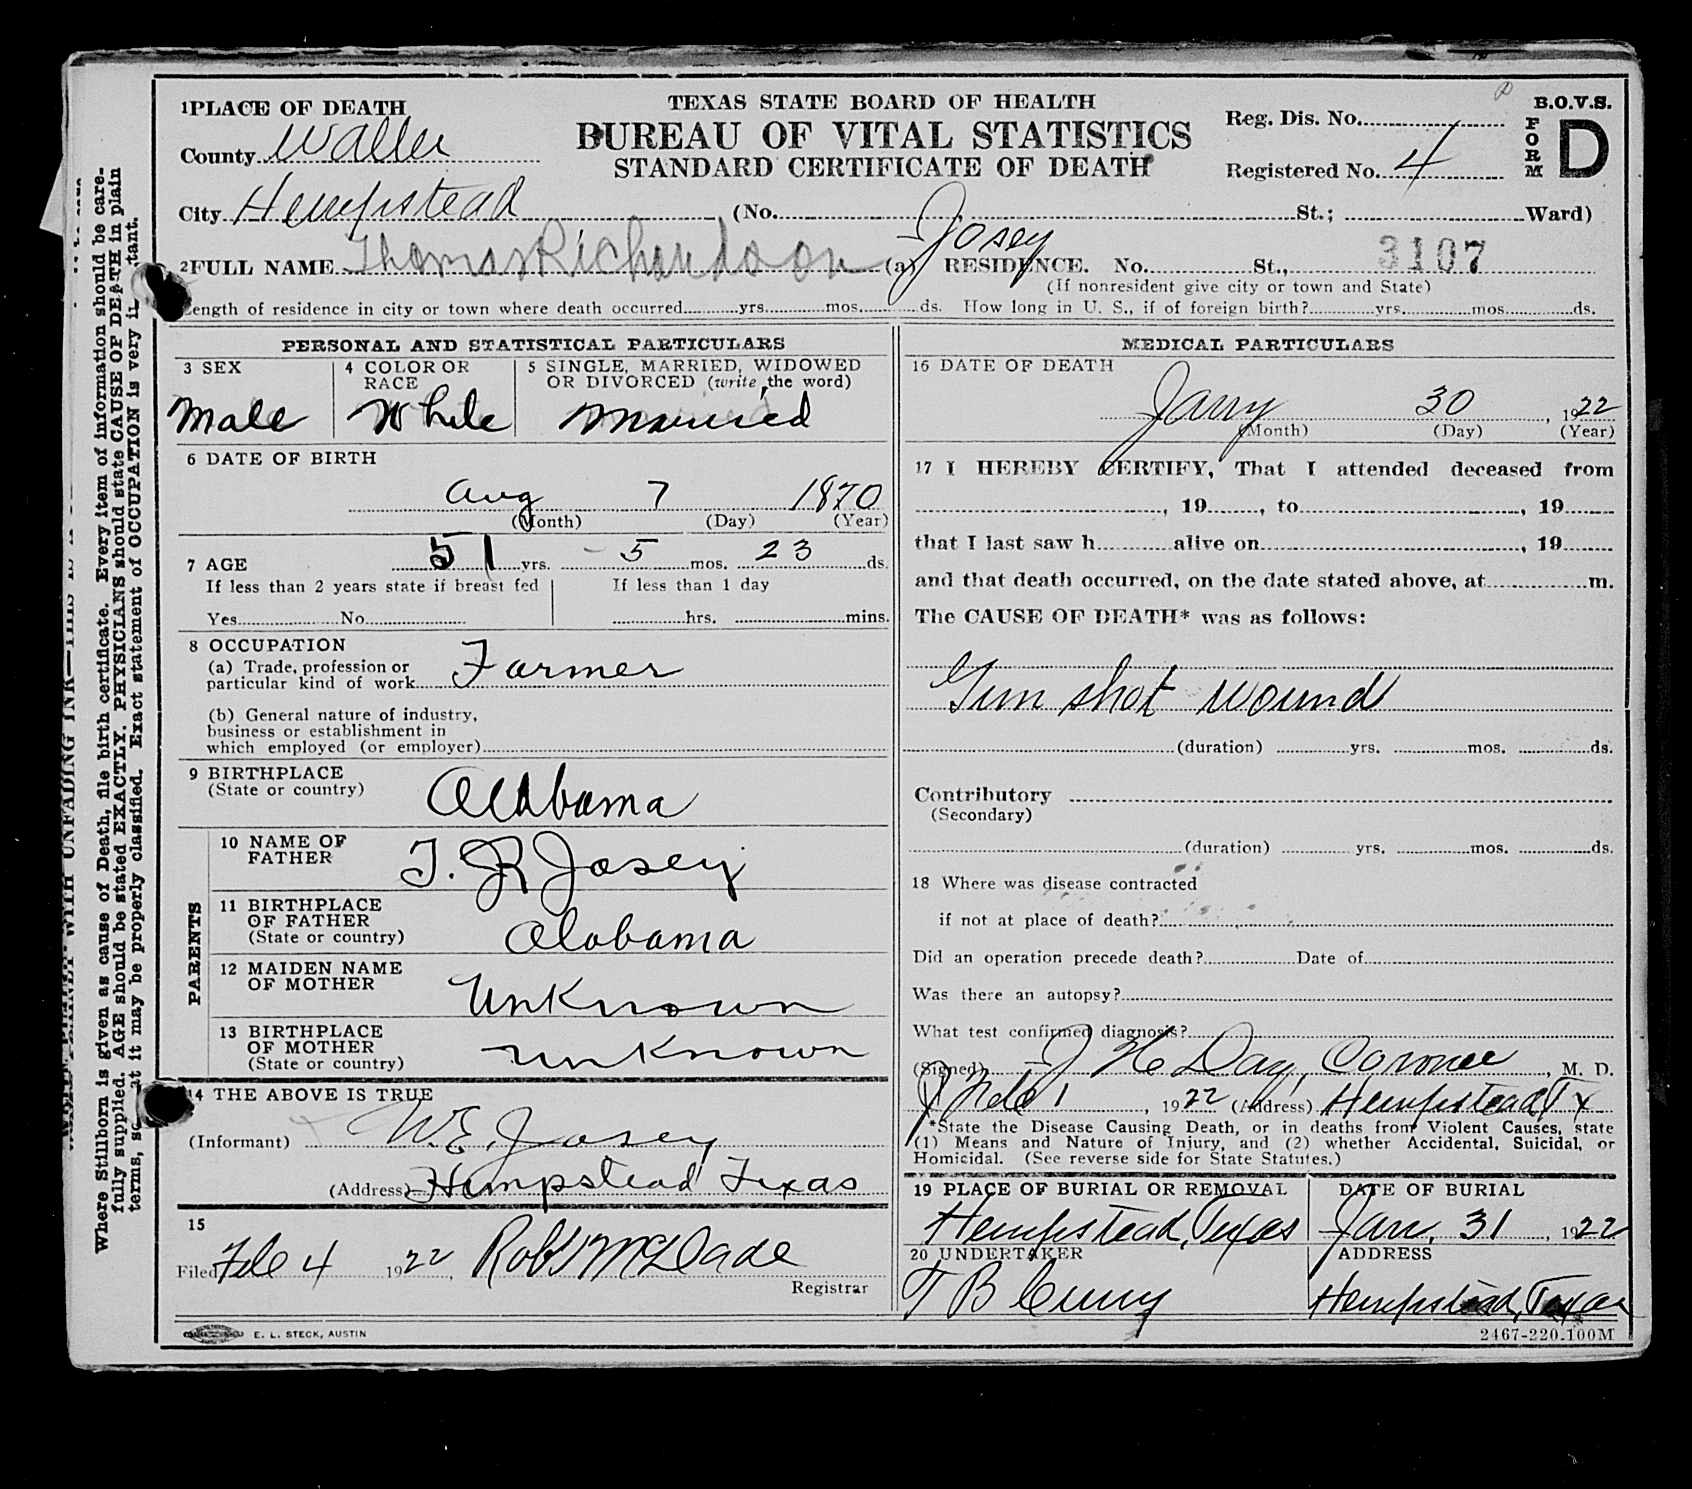 1 PLACE OF DEATH
TEXAS STATE BOARD OF HEALTH
BUREAU OF VITAL STATISTICS
STANDARD CERTIFICATE OF DEATH
Reg. Dis. No.
B.O.V.S.
FORM D
County Waller
Registered No. 4
City Hempstead (No. St.; Ward)
Josey
2 FULL NAME Thomas Richardson (a) RESIDENCE. No. St., 3107
(If nonresident give city or town and State)
Length of residence in city or town where death occurred yrs. mos. ds. How long in U. S., if of foreign birth? yrs. mos. ds.
PERSONAL AND STATISTICAL PARTICULARS
3 SEX
Male
4 COLOR OR
RACE
White
5 SINGLE, MARRIED, WIDOWED
OR DIVORCED (write the word)
Married
6 DATE OF BIRTH
Aug 7 1870
(Month) (Day) (Year)
7 AGE 51 yrs. 5 mos. 23 ds.
If less than 2 years state if breast fed
Yes No
If less than 1 day
hrs. mins.
8 OCCUPATION
(a) Trade, profession or
particular kind of work Farmer
(b) General nature of industry,
business or establishment in
which employed (or employer)
9 BIRTHPLACE
(State or country) Alabama
PARENTS
10 NAME OF
FATHER T. R Josey
11 BIRTHPLACE
OF FATHER
(State or country) Alabama
12 MAIDEN NAME
OF MOTHER Unknown
13 BIRTHPLACE
OF MOTHER
(State or country) unknown
14 THE ABOVE IS TRUE
(Informant) W.E. Josey
(Address) Hempstead Texas
15
Filed Feb 4 1922, Robt McDade
Registrar
MEDICAL PARTICULARS
16 DATE OF DEATH
Jany 30, 1922
(Month) (Day) (Year)
17 I HEREBY CERTIFY, That I attended deceased from
, 19 , to , 19
that I last saw h alive on , 19
and that death occurred, on the date stated above, at m.
The CAUSE OF DEATH* was as follows:
Gun shot wound
(duration) yrs. mos. ds.
Contributory
(Secondary)
(duration) yrs. mos. ds.
18 Where was disease contracted
if not at place of death?
Did an operation precede death? Date of
Was there an autopsy?
What test confirmed diagnosis?
(Signed) J H Day, Coroner, M. D.
Feb 1, 1922 (Address) Hempstead, Tx
*State the Disease Causing Death, or in deaths from Violent Causes, state
(1) Means and Nature of Injury, and (2) whether Accidental, Suicidal, or
Homicidal. (See reverse side for State Statutes.)
19 PLACE OF BURIAL OR REMOVAL
Hempstead, Texas
DATE OF BURIAL
Jan. 31, 1922
20 UNDERTAKER
T B Cuny
ADDRESS
Hempstead, Texas
E. L. STECK, AUSTIN
2467-220.100M
Where Stillborn is given as cause of Death, file birth certificate. Every item of information should be care-
fully supplied. AGE should be stated EXACTLY. PHYSICIANS should state CAUSE OF DEATH in plain
terms, so at it may be properly classified. Exact statement of OCCUPATION is very tant.